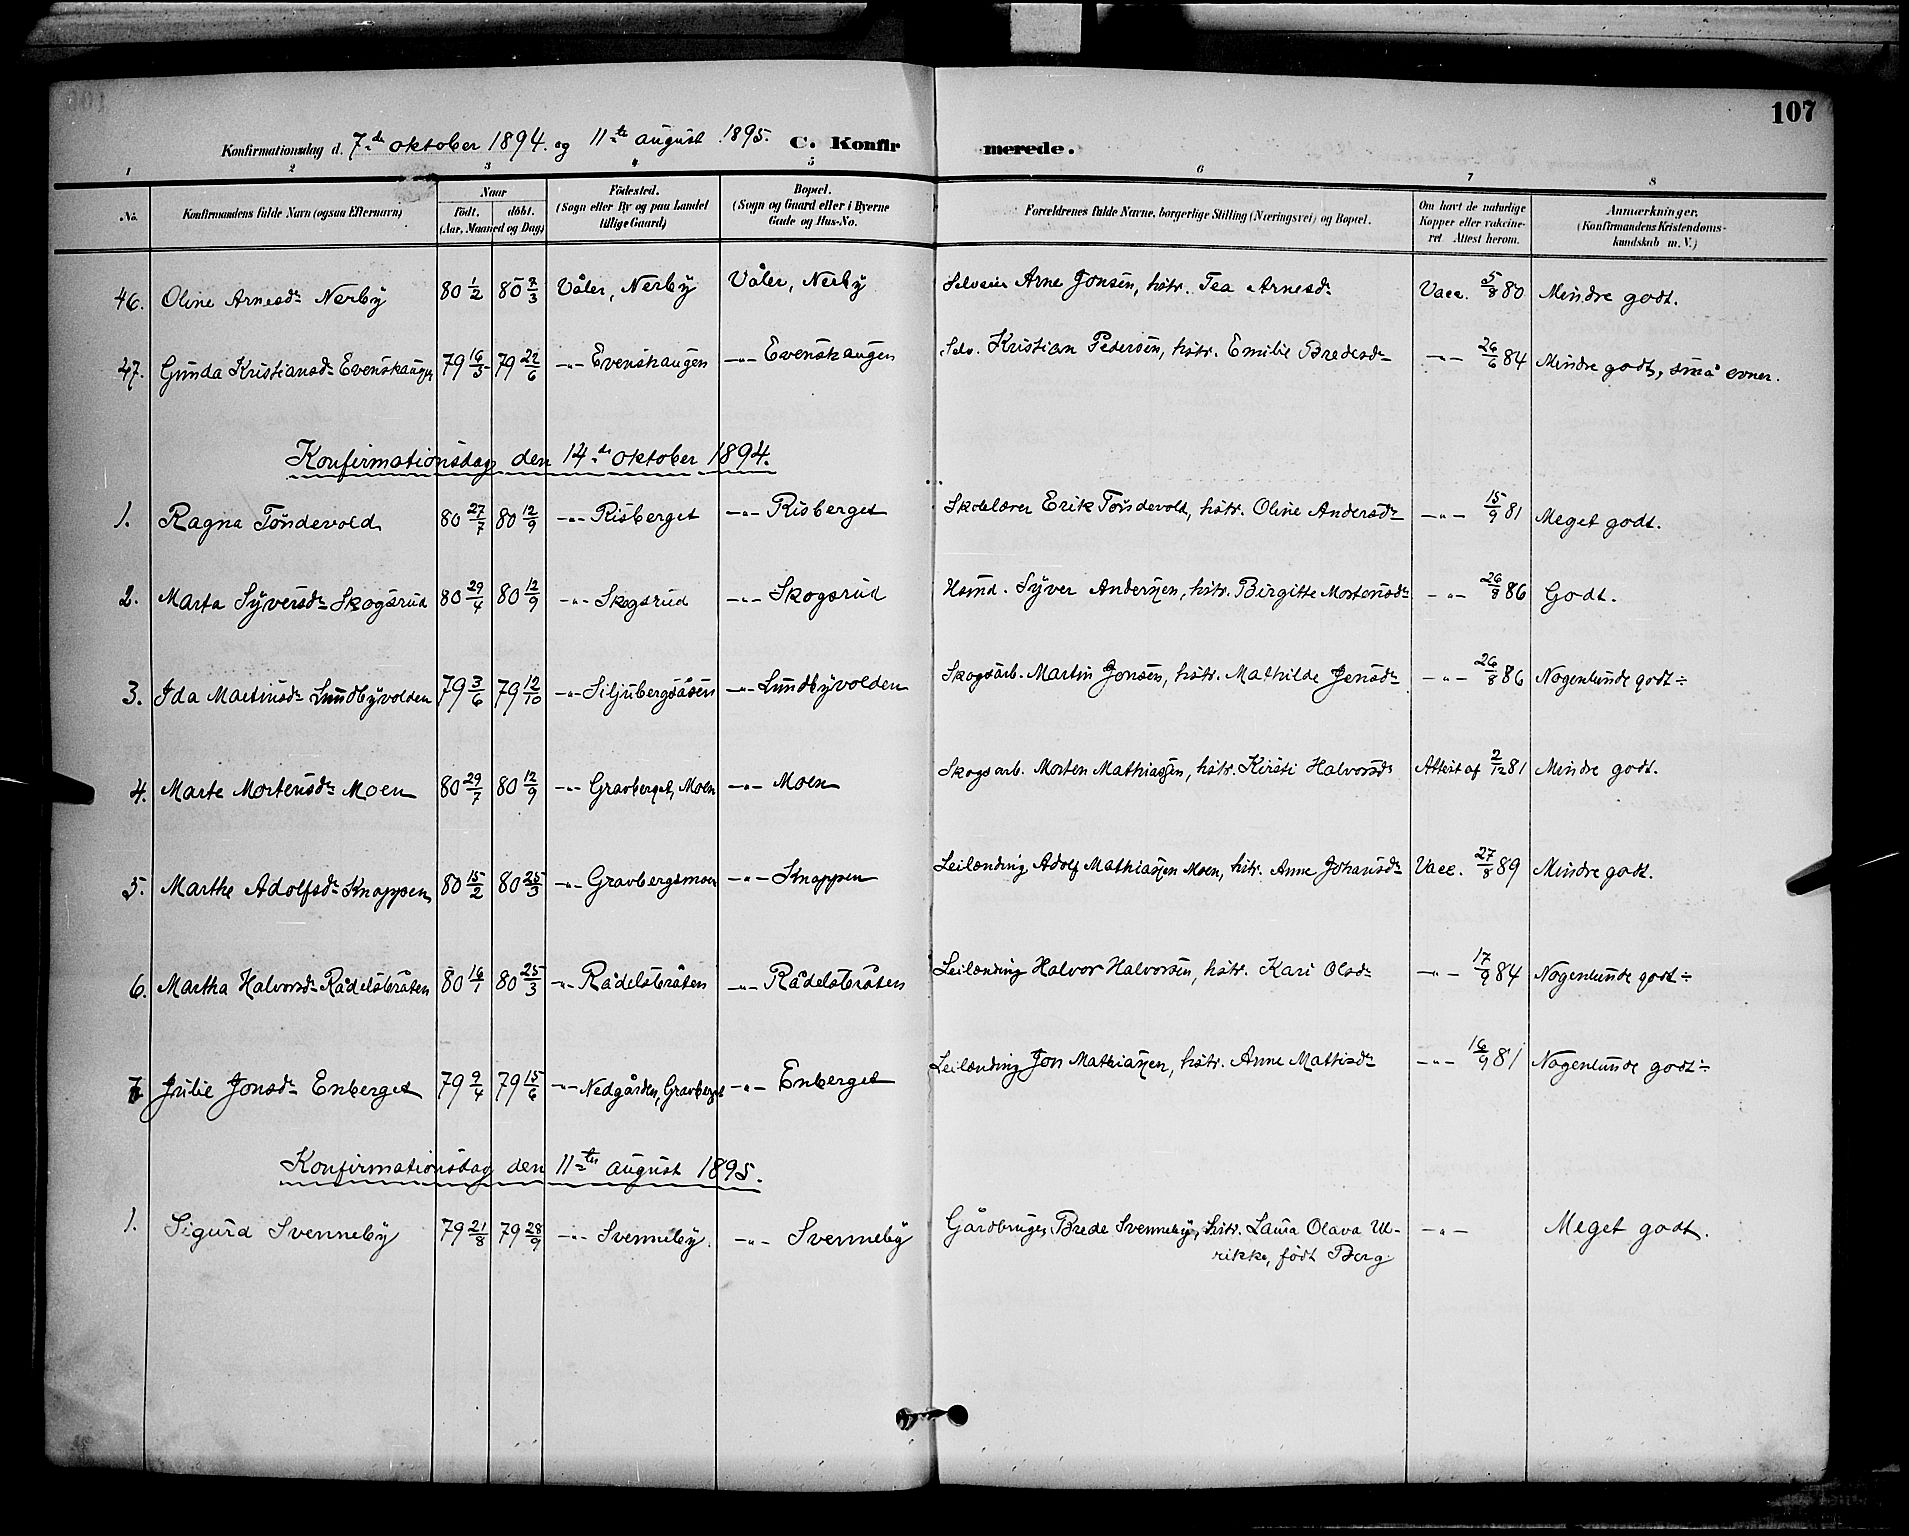 107
Konfirmationsdag d. 7de oktober 1894. og 11te august 1895. C. Konfir merede.
1 2 3 4 5 6 7 8
No. Konfirmandens fulde Navn (ogsaa Efternavn) Naar födt. döbt. (Aar, Maaned og Dag) Födested. (Sogn eller By og paa Landet tillige Gaard) Bopæl. (Sogn og Gaard eller i Byerne Gade og Hus-No. Forældrenes fulde Navne, borgerlige Stilling (Næringsvei) og Bopæl. Om havt de naturlige Kopper eller vakcineret. Attest herom. Anmærkninger. (Konfirmandens Kristendomskundskab m. V.)
46. Oline Arnesd. Nerby 80 1/2 80 7/3 Våler, Nerby Våler, Nerby Selveier Arne Jonsen, hstr. Tea Arnesd. Vacc. 5/8 80 Mindre godt.
47. Gunda Kristiansd. Evenshaugen 79 16/3 79 22/6 -"- Evenshaugen -"- Evenshaugen Selv. Kristian Pedersen, hstr. Emilie Bredesd. -"- 26/6 84 Mindre godt, små evner.
Konfirmationsdag den 14de oktober 1894.
1. Ragna Töndevold 80 27/7 80 12/9 -"- Risberget -"- Risberget Skolelærer Erik Töndevold, hstr. Oline Andersd. -"- 15/9 81 Meget godt.
2. Marta Syversd. Skogsrud 80 29/4 80 12/9 -"- Skogsrud -"- Skogsrud Hsmd. Syver Andersen, hstr. Birgitte Mortensd. -"- 26/8 86 Godt.
3. Ida Martinsd. Lundbyvolden 79 3/6 79 12/10 -"- Siljubergsåsen -"- Lundbyvolden Skogsarb. Martin Jonsen, hstr. Mathilde Jensd. -"- 26/8 86 Nogenlunde godt ÷
4. Marte Mortensd. Moen 80 29/7 80 12/9 -"- Gravberget, Moen -"- Moen Skogsarb. Morten Mathiassen, hstr. Kirsti Halvorsd. Attest af 2/12 81 Mindre godt.
5. Marthe Adolfsd. Knappen 80 15/2 80 25/3 -"- Gravbergsmoen -"- Knappen Leilænding Adolf Mathiassen Moen, hstr. Anne Johansd. Vacc. 27/8 89 Mindre godt.
6. Martha Halvorsd. Rådelsbråten 80 16/1 80 25/3 -"- Rådelsbråten -"- Rådelsbråten Leilænding Halvor Halvorsen, hstr. Kari Olsd. -"- 17/9 84 Nogenlunde godt ÷
7. Julie Jonsd. Enberget 79 9/4 79 15/6 -"- Nedgården, Gravberget -"- Enberget Leilænding Jon Mathiassen, hstr. Anne Mattisd. -"- 16/9 81 Nogenlunde godt ÷
Konfirmationsdag den 11te august 1895.
1. Sigurd Svenneby 79 21/8 79 28/9 -"- Svenneby. -"- Svenneby Gårdbruger Brede Svenneby, hstr. Laura Olava Ul- -"- Meget godt.
rikke, födt Berg.